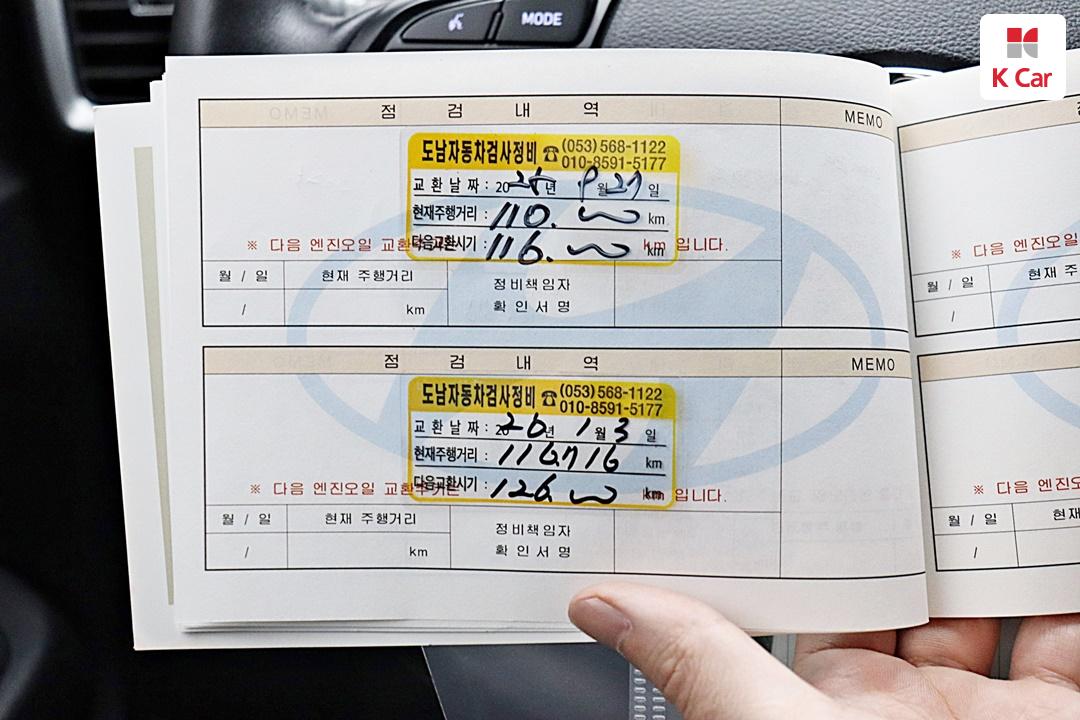 MODE
K Car
점 검 내 역 MEMO
도남자동차검사정비 ☎ (053) 568-1122
010-8591-5177
교 환 날 짜 : 2025년 9월 27일
현재주행거리 : 110. km
다음교환시기 : 116. km
※ 다음 엔진오일 교환주기는 km 입니다.
월 / 일 현재 주행거리 정비책임자
/ km 확 인 서 명
점 검 내 역 MEMO
도남자동차검사정비 ☎ (053) 568-1122
010-8591-5177
교 환 날 짜 : 2026년 1월 3일
현재주행거리 : 116.716 km
다음교환시기 : 126. km
※ 다음 엔진오일 교환주기는 km 입니다.
월 / 일 현재 주행거리 정비책임자
/ km 확 인 서 명
※ 다음 엔진오일
월 / 일 현재
/
※ 다음 엔진오
월 / 일 현재
/